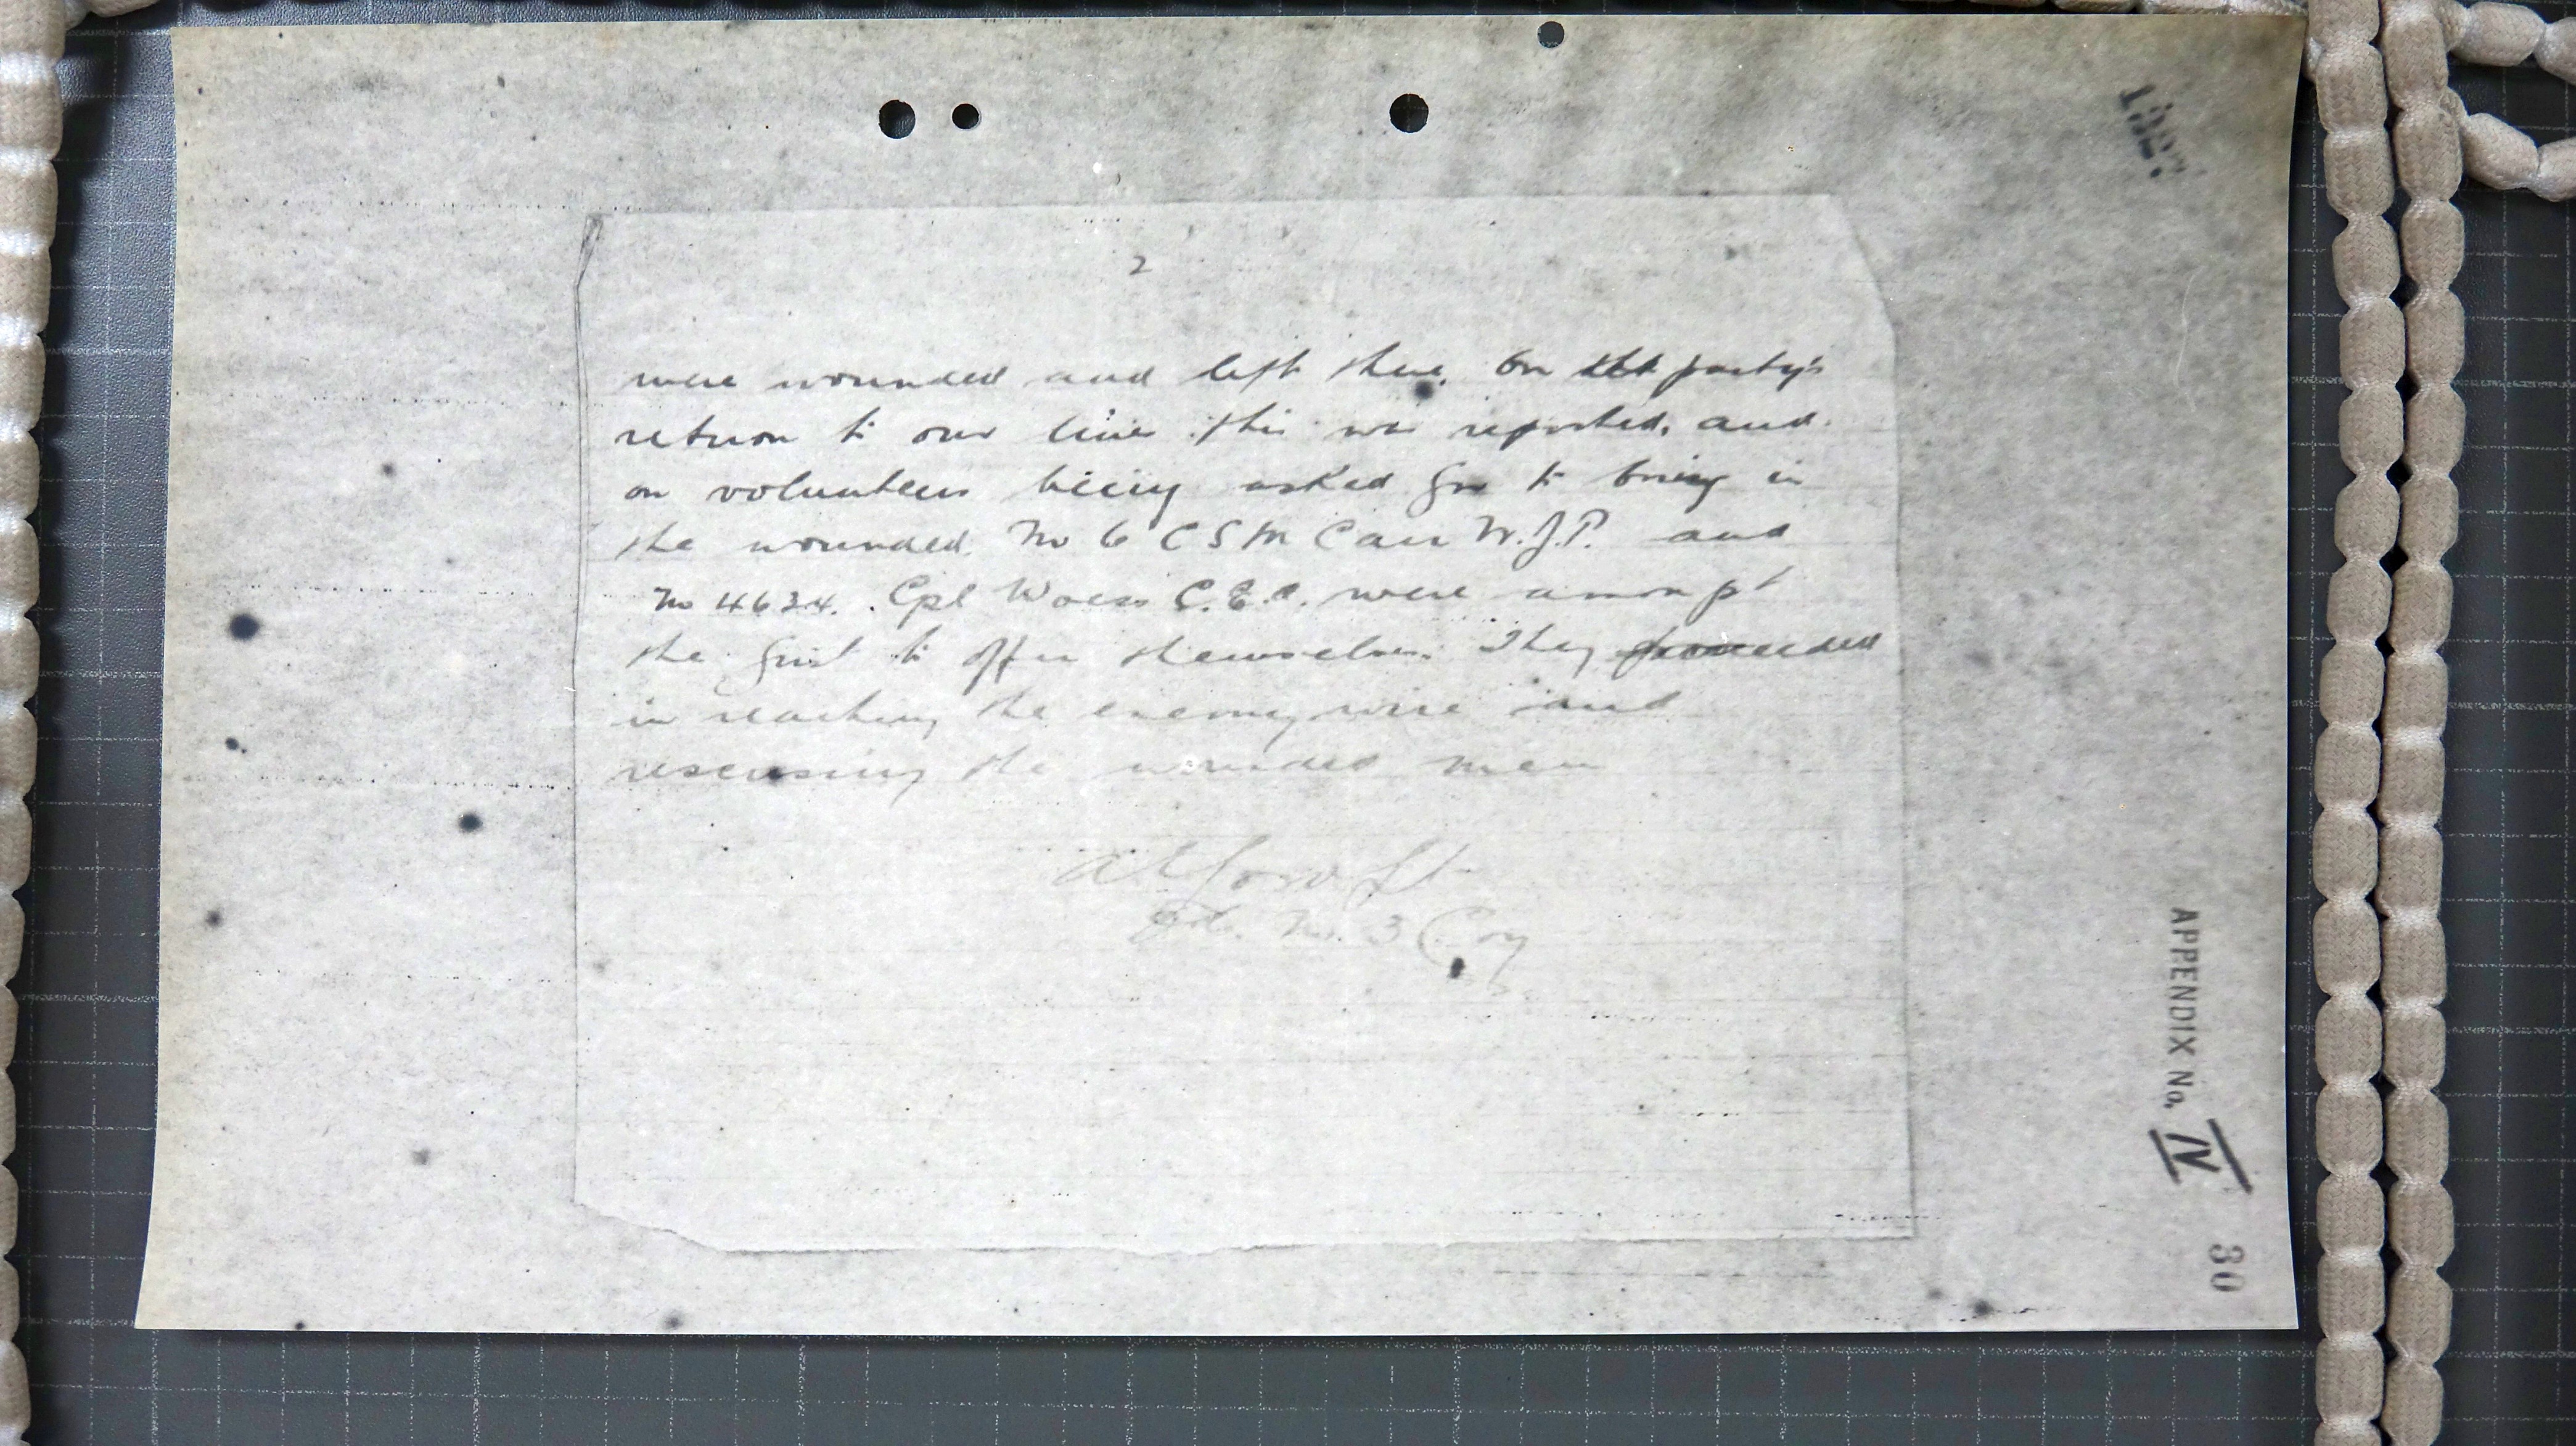 2
were wounded and left there. On the party's
return to our lines this was reported, and
on volunteers being asked for to bring in
the wounded. No 6 CSM Carr W.J.P. and
No 4634. Cpl C.E.C. were amongst
the first to offer themselves. They
in reaching the enemy wire and
rescusing the wounded men
Lt
No. 3 Coy
APPENDIX No. IV
30